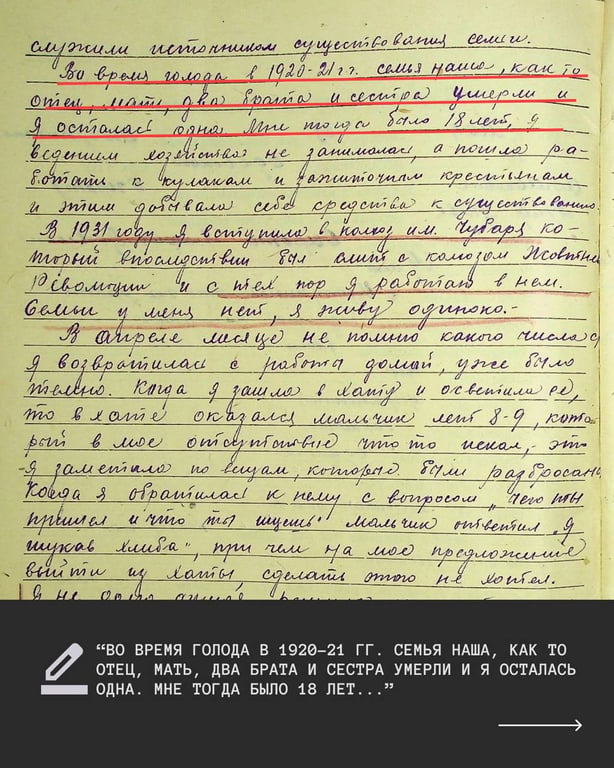 служили источником существования семьи.
Во время голода в 1920-21 гг. семья наша, как то
отец, мать, два брата и сестра умерли и
я осталась одна. Мне тогда было 18 лет, я
ведением хозяйства не занималась, а пошла ра-
ботать к кулакам и зажиточным крестьянам
и этим добывала себе средства к существованию.
В 1931 году я вступила в колхоз им. Чубаря ко-
торый впоследствии был слит с колхозом Жовтнев
Революции и с тех пор я работаю в нем.
Семьи у меня нет, я живу одиноко.-
В апреле месяце не помню какого числа
я возвратилась с работы домой, уже было
темно. Когда я зашла в хату и осветила ее,
то в хате оказался мальчик лет 8-9, кото-
рый в мое отсутствие что то искал,- это
я заметила по вещам, которые были разбросан
Когда я обратилась к нему с вопросом „чего ты
пришел и что ты ищешь" мальчик ответил „я
шукав хлиба", при чем на мое предложение
выйти из хаты, сделать этого не хотел.
Я не
“ВО ВРЕМЯ ГОЛОДА В 1920–21 ГГ. СЕМЬЯ НАША, КАК ТО
ОТЕЦ, МАТЬ, ДВА БРАТА И СЕСТРА УМЕРЛИ И Я ОСТАЛАСЬ
ОДНА. МНЕ ТОГДА БЫЛО 18 ЛЕТ...”